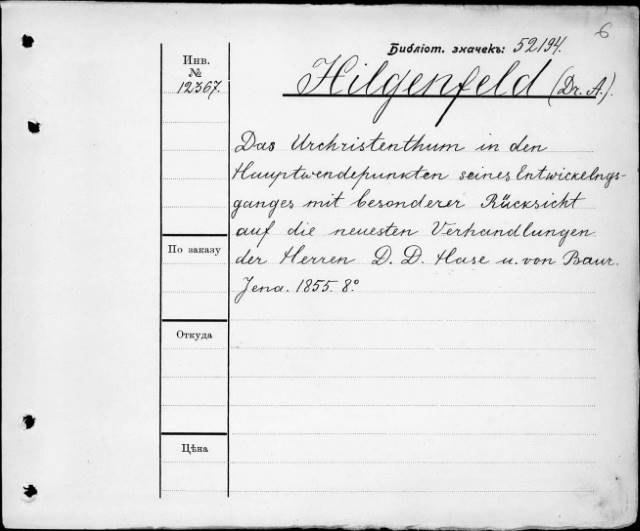 6
Библіот. значекъ: 52194.
Инв.
№
12367.
Hilgenfeld (Dr. A.).
Das Urchristenthum in den
Hauptwendepunkten seines Entwickelngs-
ganges mit besonderer Rücksicht
auf die neuesten Verhandlungen
der Herren D. D. Hase u. von Baur.
Jena. 1855. 8°
По заказу
Откуда
Цѣна